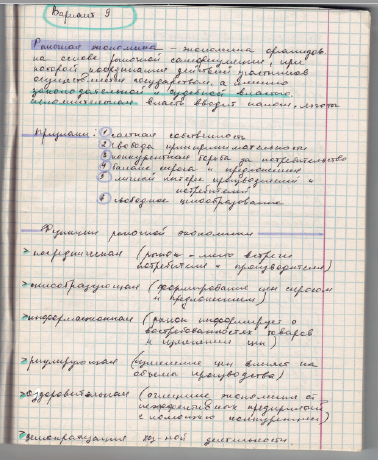 Вариант 9
Рыночная экономика - экономика организов.
на основе рыночной саморегуляции, при
которой координация действий участников
осуществляется государством, а именно
законодательной и судебной властью,
исполнительная власть вводит налоги, льготы
Признаки: 1 частная собственность
2 свобода предпринимательства
3 конкурентная борьба за потребительство
4 баланс спроса и предложения
5 личный интерес производителей и
потребителей
6 свободное ценообразование
Функции рыночной экономики
> посредническая (рынок - место встречи
потребителя и производителя)
> ценообразующая (формирование цен спросом
и предложением)
> информационная (рынок информирует о
востребованностях товаров
и изменении цен)
> регулирующая (изменение цен влияет на
объёмы производства)
> оздоровительная (очищение экономики от
неэффективных предприятий
с помощью конкуренции)
> демократизация хоз-ной деятельности